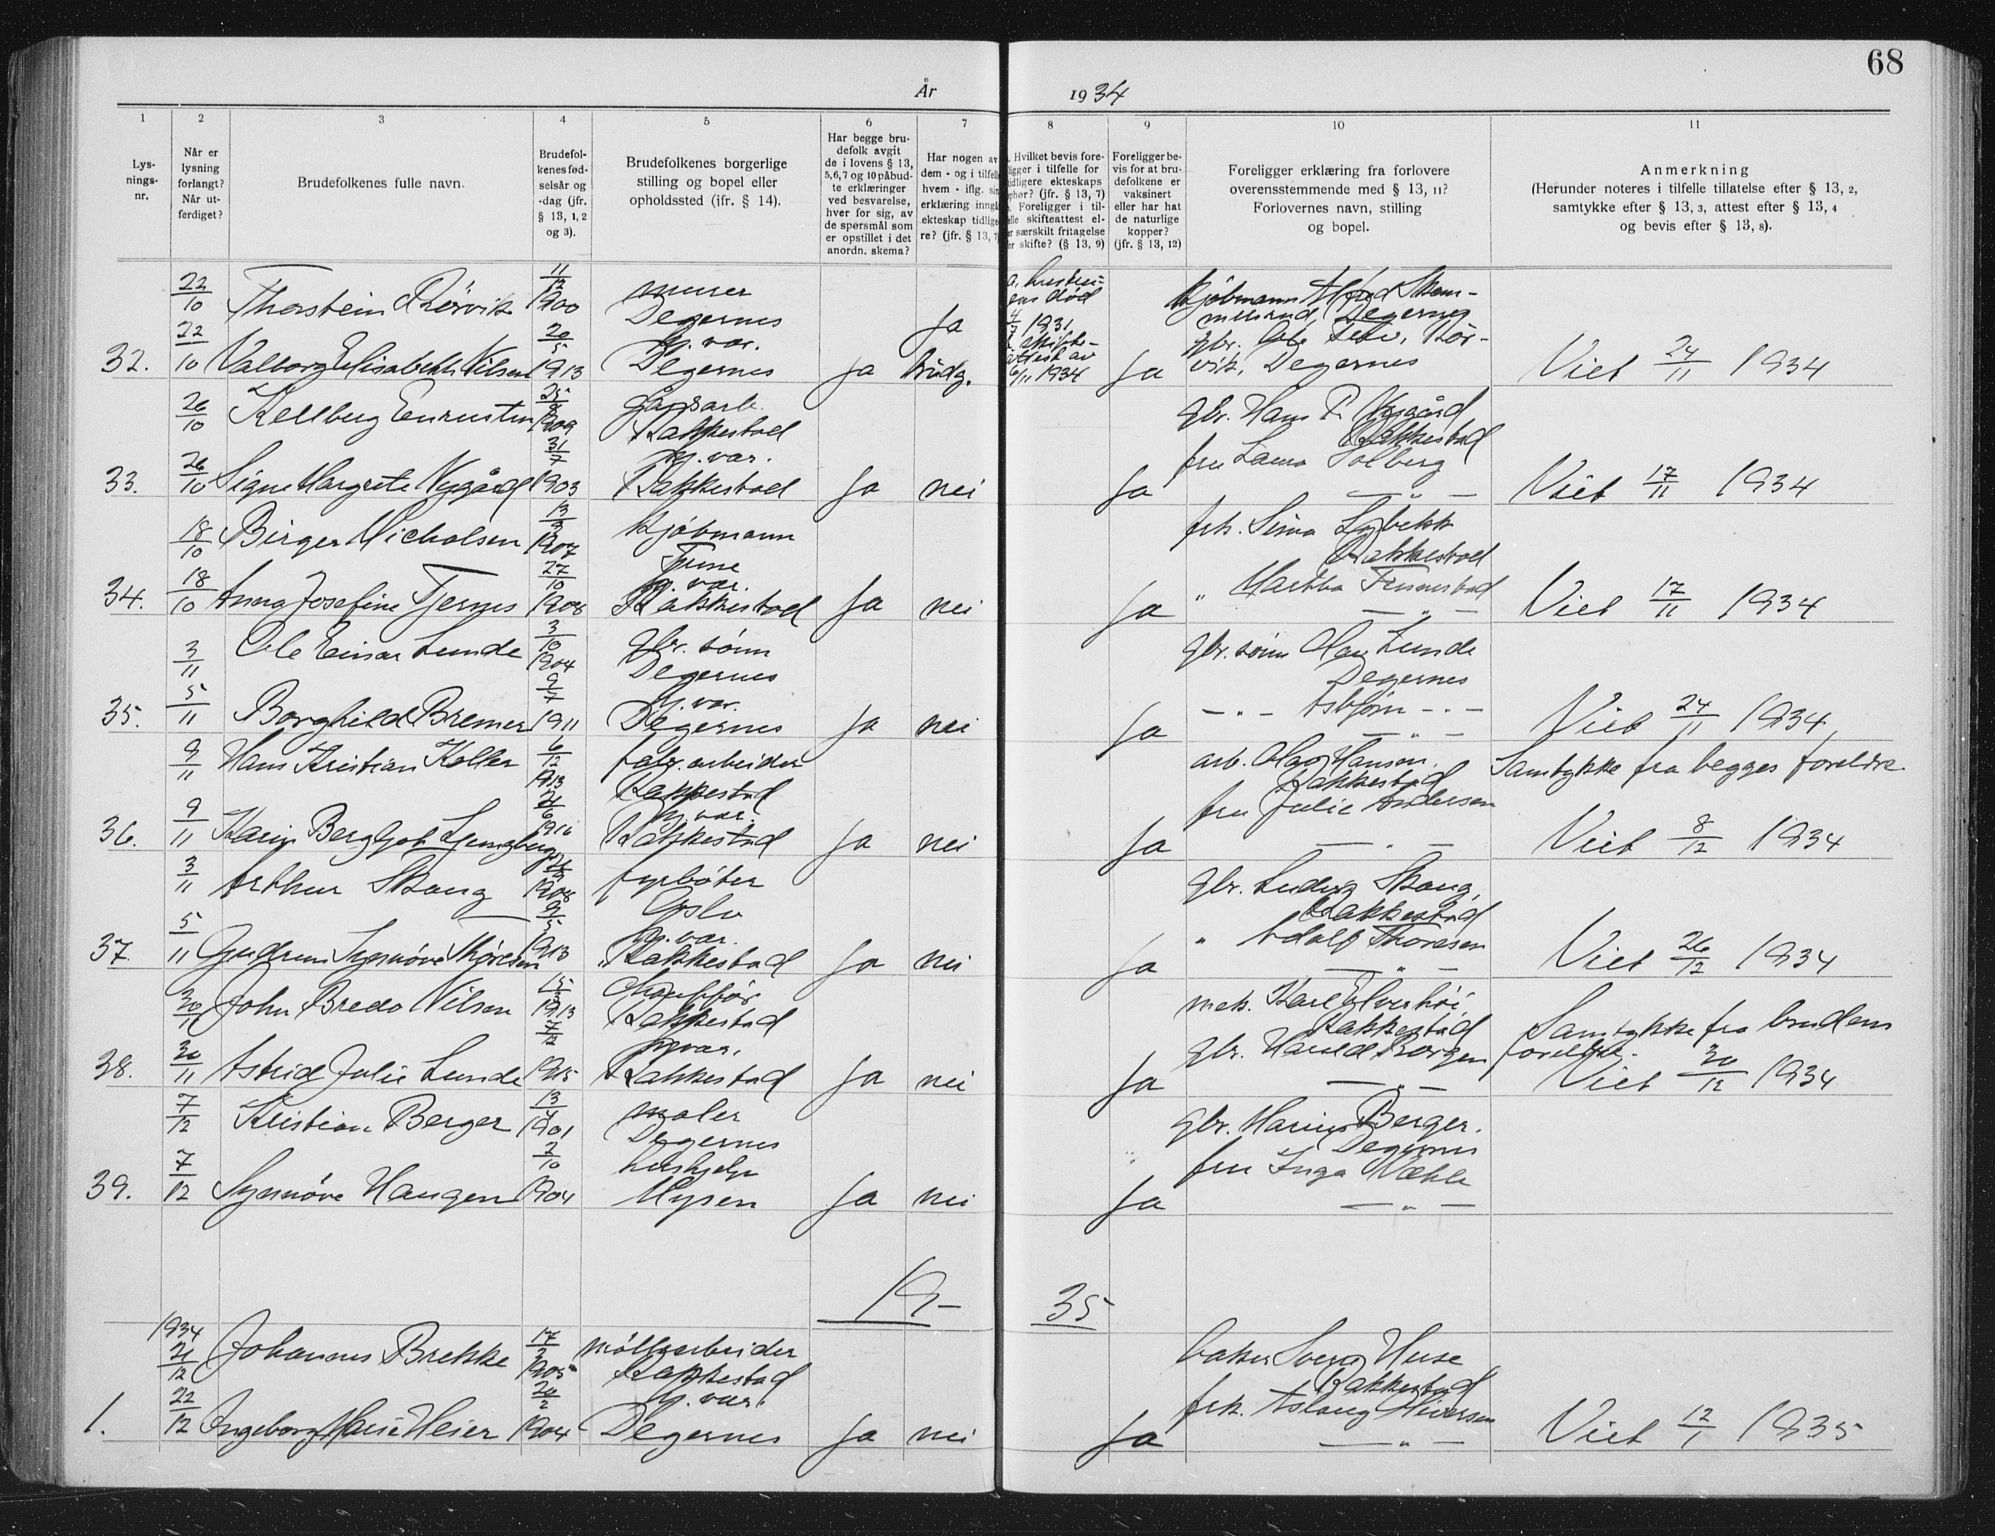 68
År 1934
1 2 3 4 5 6 7 8 9 10 11
Lys-
nings-
nr.
Når er
lysning
forlangt?
Når ut-
ferdiget?
Brudefolkenes fulle navn.
Brudefol-
kenes fød-
selsår og
-dag (jfr.
§ 13, 1, 2
og 3).
Brudefolkenes borgerlige
stilling og bopel eller
opholdssted (ifr. § 14).
Har begge bru-
defolk avgit
de i lovens § 13,
5,6,7 og 10 påbud-
te erklæringer
ved besvarelse,
hver for sig, av
de spørsmål som
er opstillet i det
anordn. skema?
Har nogen av
dem - og i tilfelle
hvem - iflg. sin
erklæring inngå
ekteskap tidlige
re? (jfr. § 13, 7
. Hvilket bevis fore-
ligger i tilfelle for
tidligere ekteskaps
ophør? (jfr. § 13, 7)
. Foreligger i til-
felle skifteattest el-
er særskilt fritagelse
er skifte? (§ 13, 9)
Foreligger be-
vis for at bru-
defolkene er
vaksinert
eller har hat
de naturlige
kopper?
(jfr. § 13, 12)
Foreligger erklæring fra forlovere
overensstemmende med § 13, 11?
Forlovernes navn, stilling
og bopel.
Anmerkning
(Herunder noteres i tilfelle tillatelse efter § 13, 2,
samtykke efter § 13, 3, attest efter § 13, 4
og bevis efter § 13, 8).
22/10 Thorstein Rörvik 11/12 1900 murer Degernes
32. 22/10 Valborg Elisabeth Nilsen 20/5 1913 h. var. Degernes Ja Ja Brudg.
død 4/7 1931 skifte-
attest av 6/11 1934 Ja
Kjøbmann
Degernes
gbr. Ole Rör-
vik, Degernes
Viet 24/11 1934
26/10 Kellberg 1909 gårdsarb. Rakkestad
33. 26/10 Signe Margrete Nygård 31/7 1903 h. var. Rakkestad Ja nei Ja
gbr. Hans P. Nygård
Rakkestad
fru Solberg
— " —
Viet 17/11 1934
18/10 Birger Nicholsen 13/3 1907 Kjøbmann
34. 18/10 Anna Josefine Tjernes 27/10 1908 h. var. Rakkestad Ja nei Ja
frk. Lybekk
Rakkestad
" Martha
— " —
Viet 17/11 1934
3/11 Ole Einar Lunde 3/10 1904 gbr. sönn Degernes
35. 5/11 Borghild Bremer 9/7 1911 h. var. Degernes Ja nei Ja
gbr. sönn Olav Lunde
Degernes
— " — Asbjørn — " —
— " —
Viet 24/11 1934
9/11 Hans Kristian Koller 6/12 1913 fabr. arbeider Rakkestad
36. 9/11 Karin Bergljot Ljungberg 1916 h. var. Rakkestad Ja nei Ja
arb. Olav Hansen.
Rakkestad
fru Julie Andersen
— " —
Samtykke fra begges foreldre
Viet 8/12 1934
3/11 Arthur Skaug 1908 fyrbøter Oslo
37 5/11 Gudrun Synnöve Thoresen 1913 h. var. Rakkestad Ja nei Ja
gbr. Ludvig Skaug,
Rakkestad
" Adolf Thoresen
— " —
Viet 26/12 1934
30/11 John Bredo Nilsen 1913 Chauffør Rakkestad
38. 30/11 Astrid Julie Lunde 7/12 1915 h. var. Rakkestad Ja nei Ja
mek. Karl Elverhöi
Rakkestad
gbr. Harald Borgen
— " —
Samtykke fra brudens
foreldre.
Viet 30/12 1934
7/12 Kristian Berger 13/4 1901 maler Degernes
39. 7/12 Synnöve Haugen 2/10 1904 hushjelp Mysen Ja nei Ja
gbr. Marius Berger.
Degernes
fru Inga
— " —
19- 35
1934
21/12 Johannes Brekke 17/3 1905 møllearbeider Rakkestad
1. 22/12 Ingeborg Marie Heier 20/2 1904 h. var. Degernes Ja nei Ja
baker Huse
Rakkestad
frk. Aslaug Iversen
— " —
Viet 12/1 1935